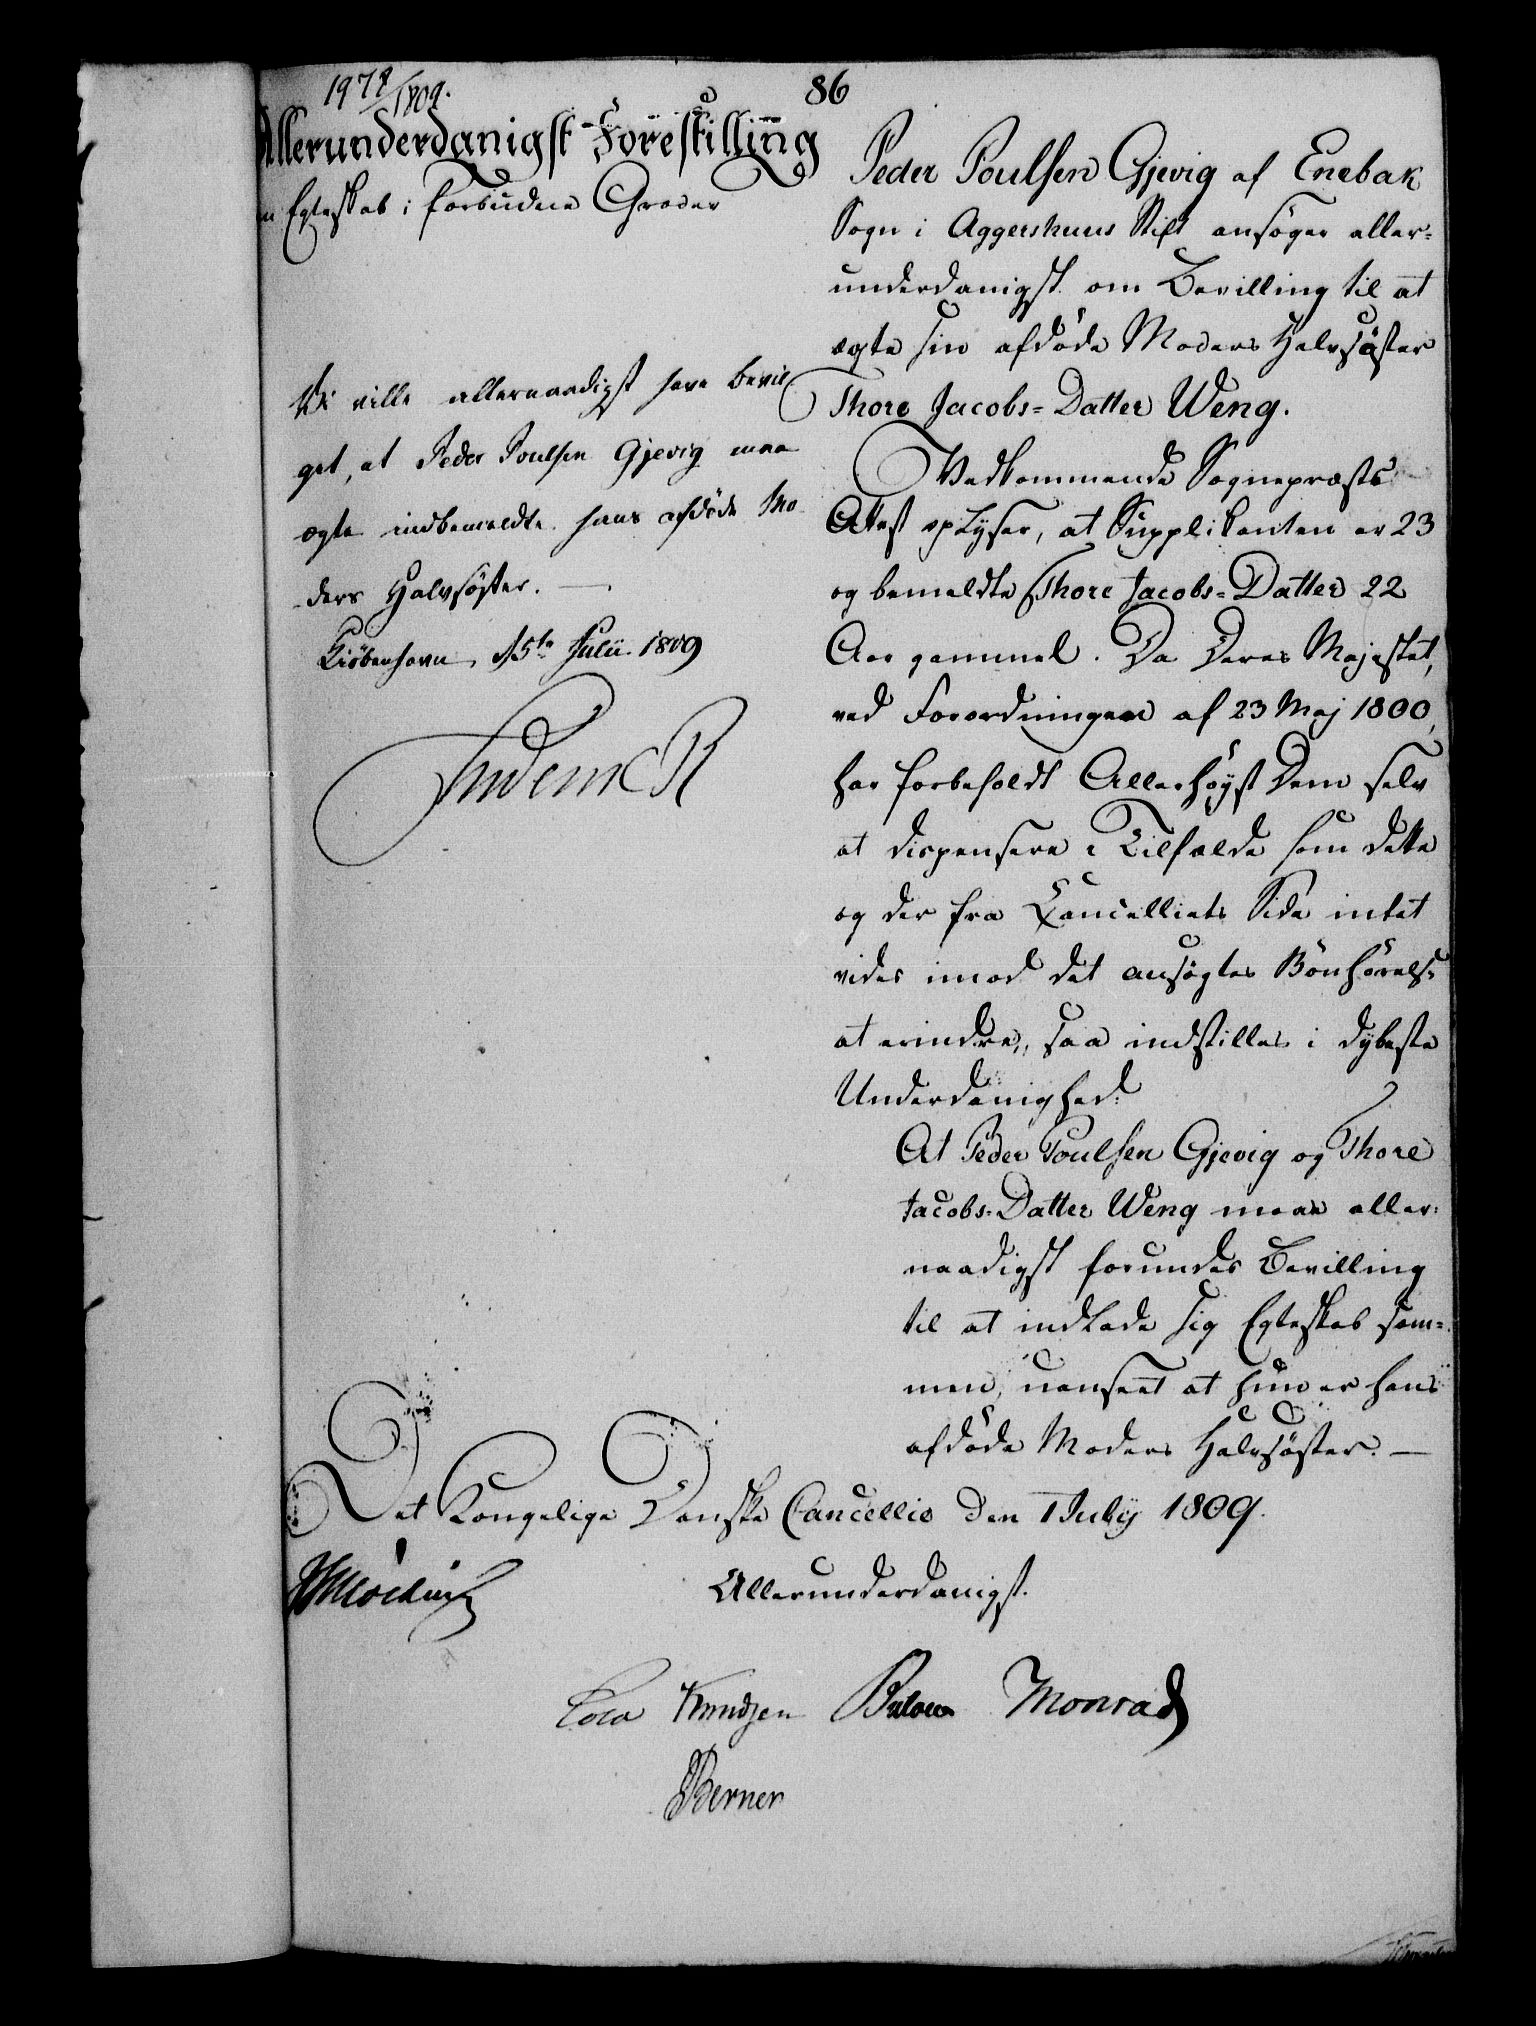 1978/1809.
86
Allerunderdanigst Forestilling
Egteskab i forbudne Grader
Vi ville allernaadigst have bevil
get, at Peder Poulsen Gjevig maa
ægte indbemeldte hans afdøde Mo
ders Halvsøster. —
Kiøbenhavn, d 5te Julii 1809
Frideric R
Peder Poulsen Gjevig af Enebak
Sogn i Aggershuus Stift ansøger aller=
underdanigst om Bevilling til at
ægte sin afdøde Moders Halvsøster
Thore Jacobs=Datter Weng.
Vedkommende Sognepræsts
Attest oplyser, at Supplikanten er 23
og bemeldte Thore Jacobs=Datter 22
Aar gammel. Da Deres Majestæt,
ved Forordningen af 23 Maj 1800,
har forbeholdt Allerhøyst Dem selv
at dispensere i Tilfælde som dette
og der fra Cancelliets Side intet
vides imod det ansøgtes Bönhörelse
at erindre, saa indstilles i dybeste
Underdanighed:
At Peder Poulsen Gjevig og Thore
Jacobs=Datter Weng maae aller=
naadigst forundes Bevilling
til at indlade sig Egteskab sam=
men, uanseet at hun er hans
afdøde Moders Halvsøster. —
Det Kongelige Danske Cancellie den 1 July 1809.
Allerunderdanigst.
Cold Knudzen Bülow Monrad
Berner